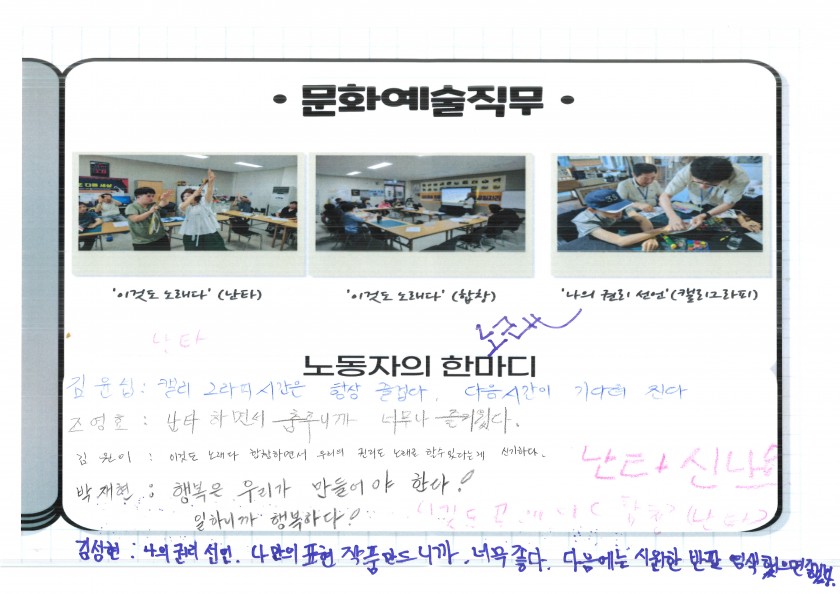 • 문화예술직무 •
'이것도 노래다' (난타)
'이것도 노래다' (합창)
'나의 권리 선언' (캘리그라피)
난타
노동자의 한마디
김윤십: 캘리 그라피시간은 항상 즐겁다. 다음시간이 기다려 진다
조영호 : 난타 하면서 춤추니까 너무나 즐거웠다.
김원이 : 이것도 노래다 합창하면서 우리의 권리도 노래로 할수있다는게 신기하다.
난타 신나요
박재현 : 행복은 우리가 만들어야 한다!
일하니까 행복하다!
김성현 : 나의 권리 선언. 나만의 표현 작품만드니까. 너무 좋다. 다음에는 시원한 반팔